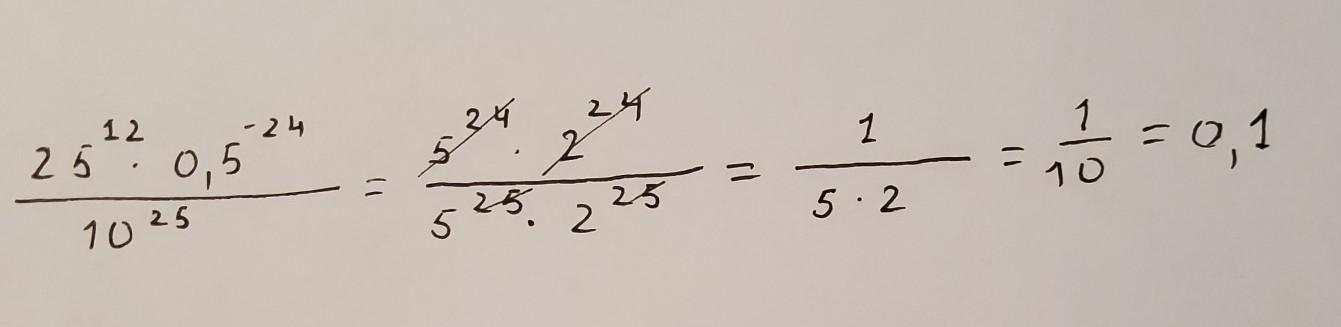 25^12 · 0,5^-24 / 10^25 = 5^24 · 2^24 / 5^25 · 2^25 = 1 / 5 · 2 = 1/10 = 0,1